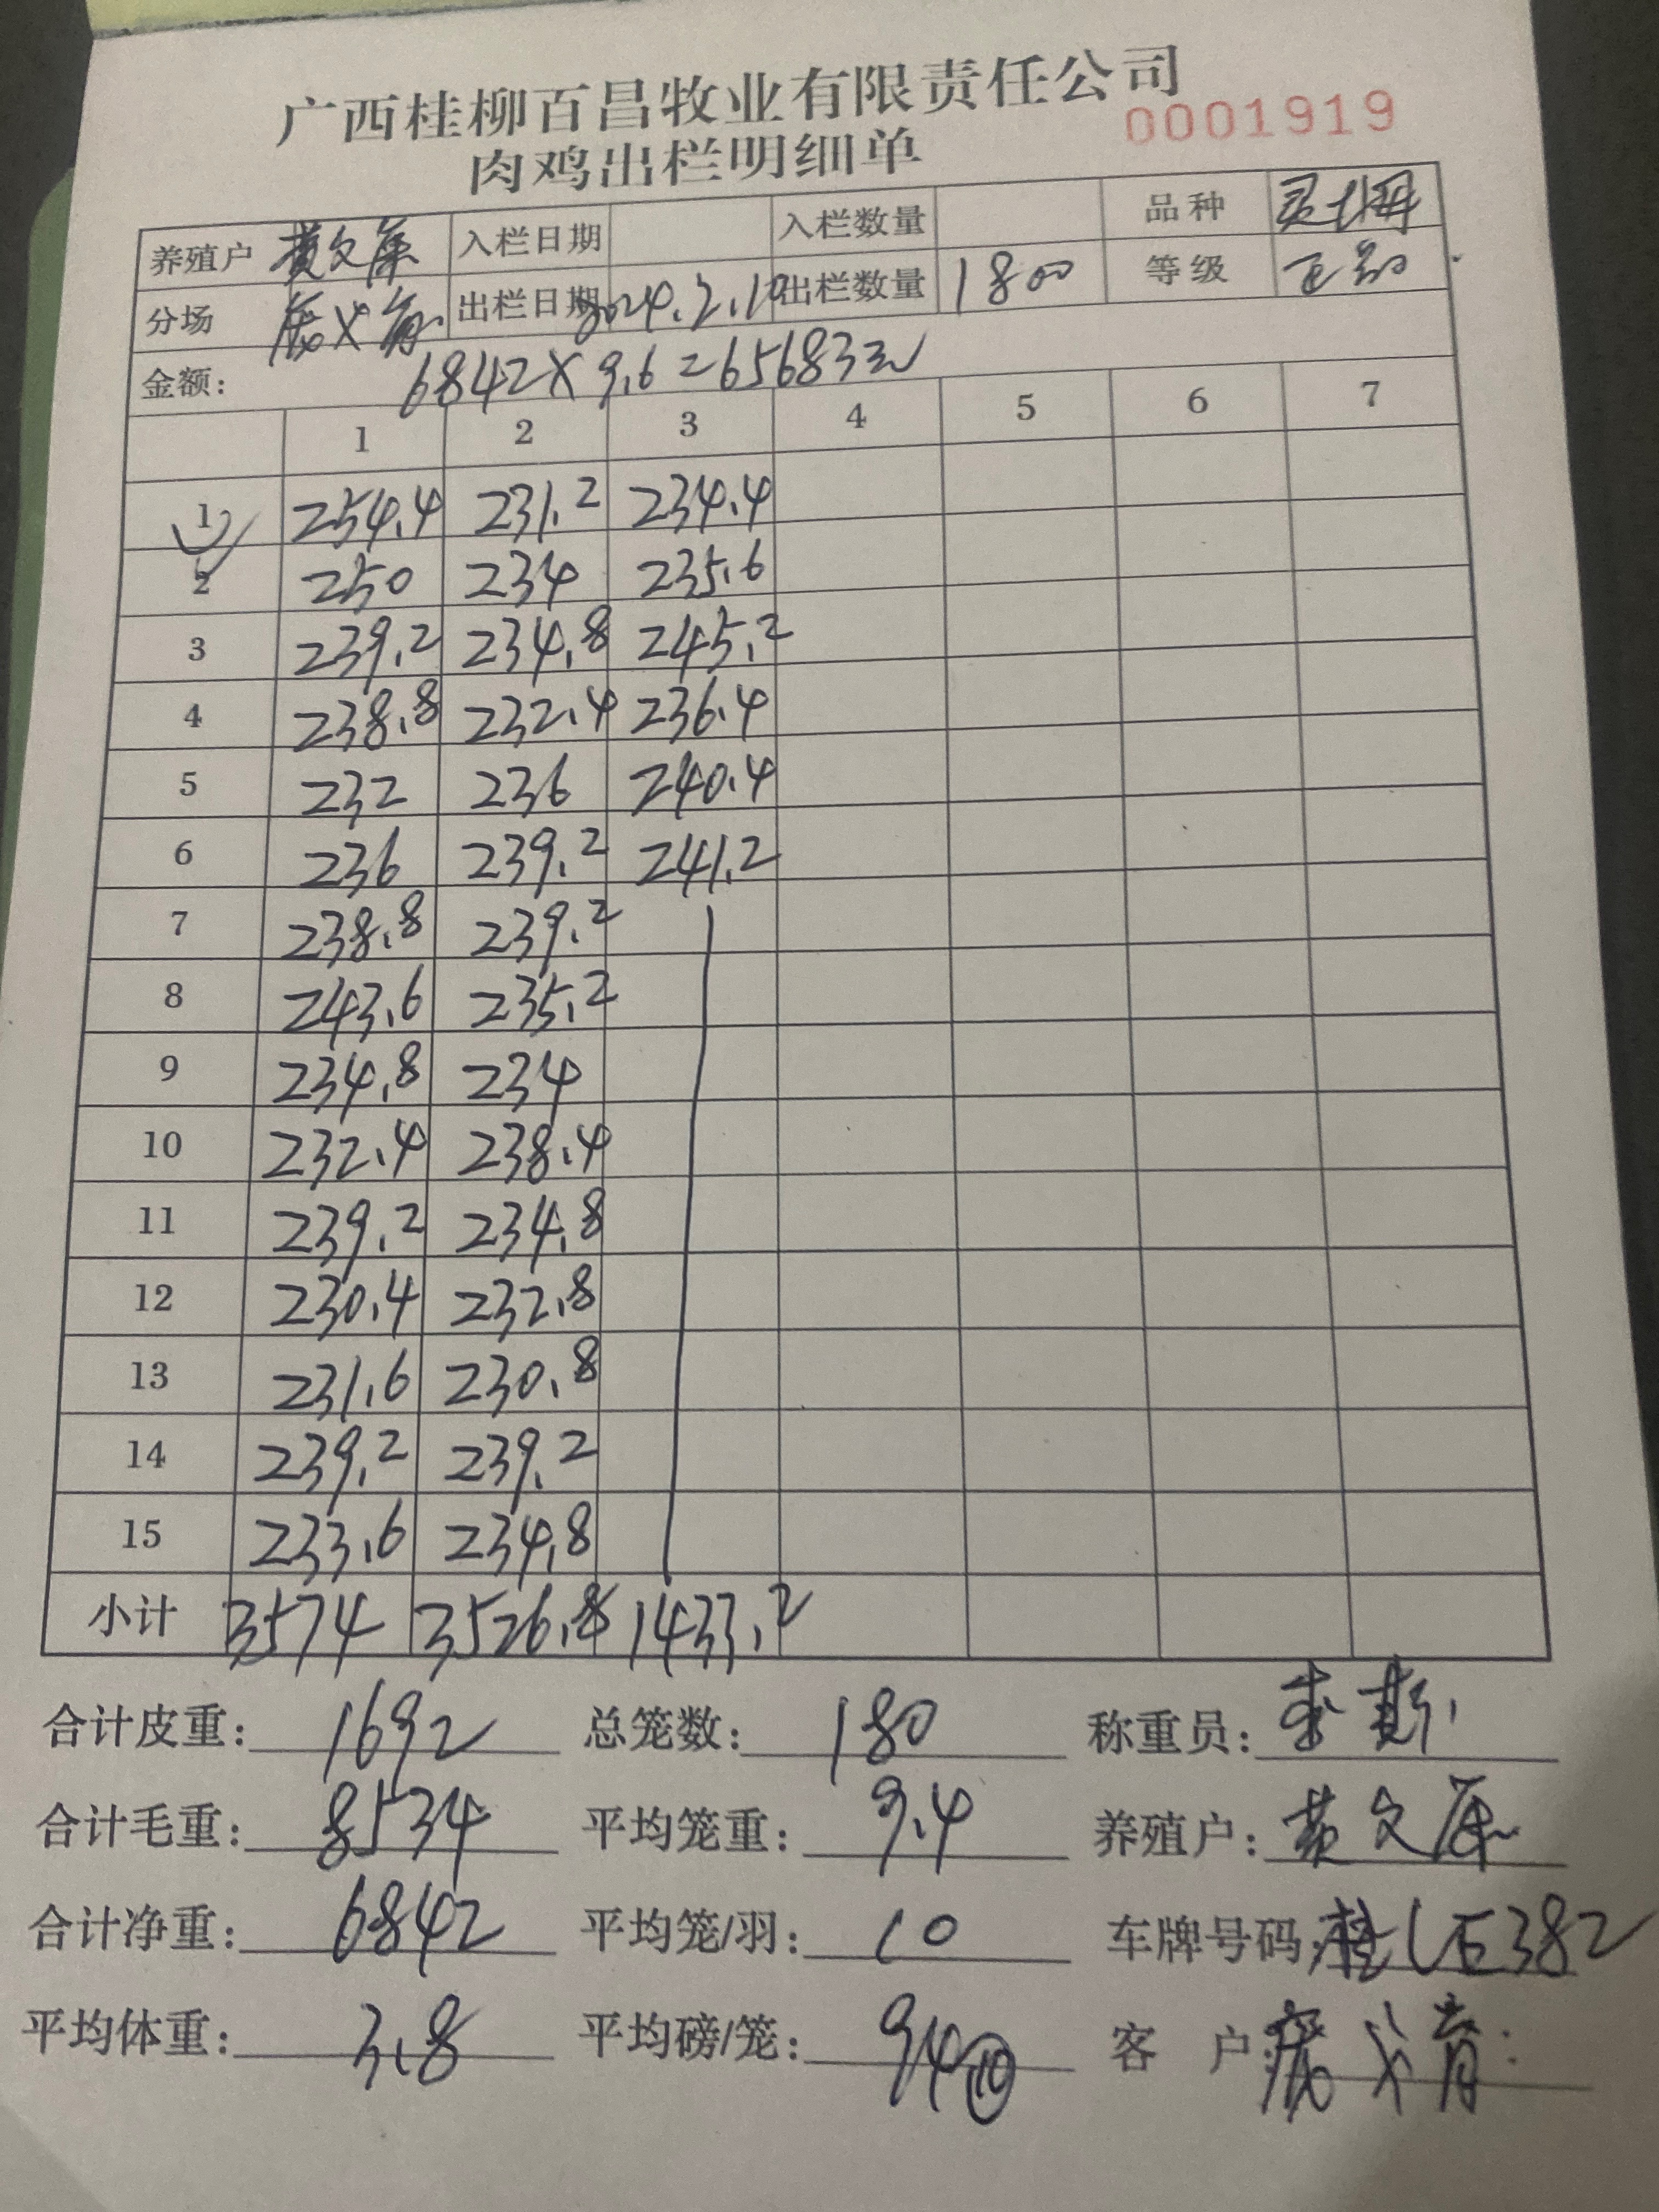 广西桂柳百昌牧业有限责任公司
0001919
肉鸡出栏明细单
养殖户 黄文 入栏日期 入栏数量 品种
分场 出栏日期 2024.2.10 出栏数量 1800 等级
金额: 6842×9.6=65683元
1 2 3 4 5 6 7
1 254.4 231.2 234.4
2 250 234 235.6
3 239.2 234.8 245.2
4 238.8 232.4 236.4
5 232 236 240.4
6 236 239.2 241.2
7 238.8 239.2
8 243.6 235.2
9 234.8 234
10 232.4 238.4
11 239.2 234.8
12 230.4 232.8
13 231.6 230.8
14 239.2 239.2
15 233.6 234.8
小计 3574 3526.8 1433.2
合计皮重: 1692 总笼数: 180 称重员: 李
合计毛重: 8534 平均笼重: 9.4 养殖户: 黄文
合计净重: 6842 平均笼/羽: 10 车牌号码: 桂 E382
平均体重: 3.8 平均磅/笼: 94⑩ 客 户: